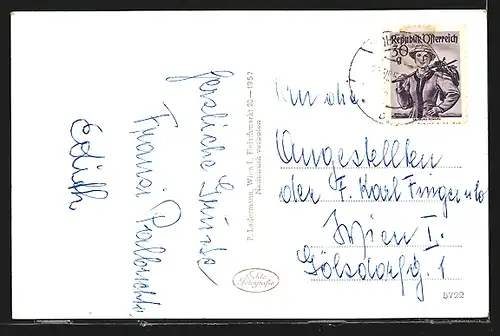 Herzliche Grüsse
Fransi
Edith
P. Ledermann, Wien I, Fleischmarkt 20—1957
Nachdruck verboten
Echte
Fotografie
Republik Österreich
30
g
An die
Angestellten
der F. Karl
Wien I.
Gölsdorfg. 1
5722